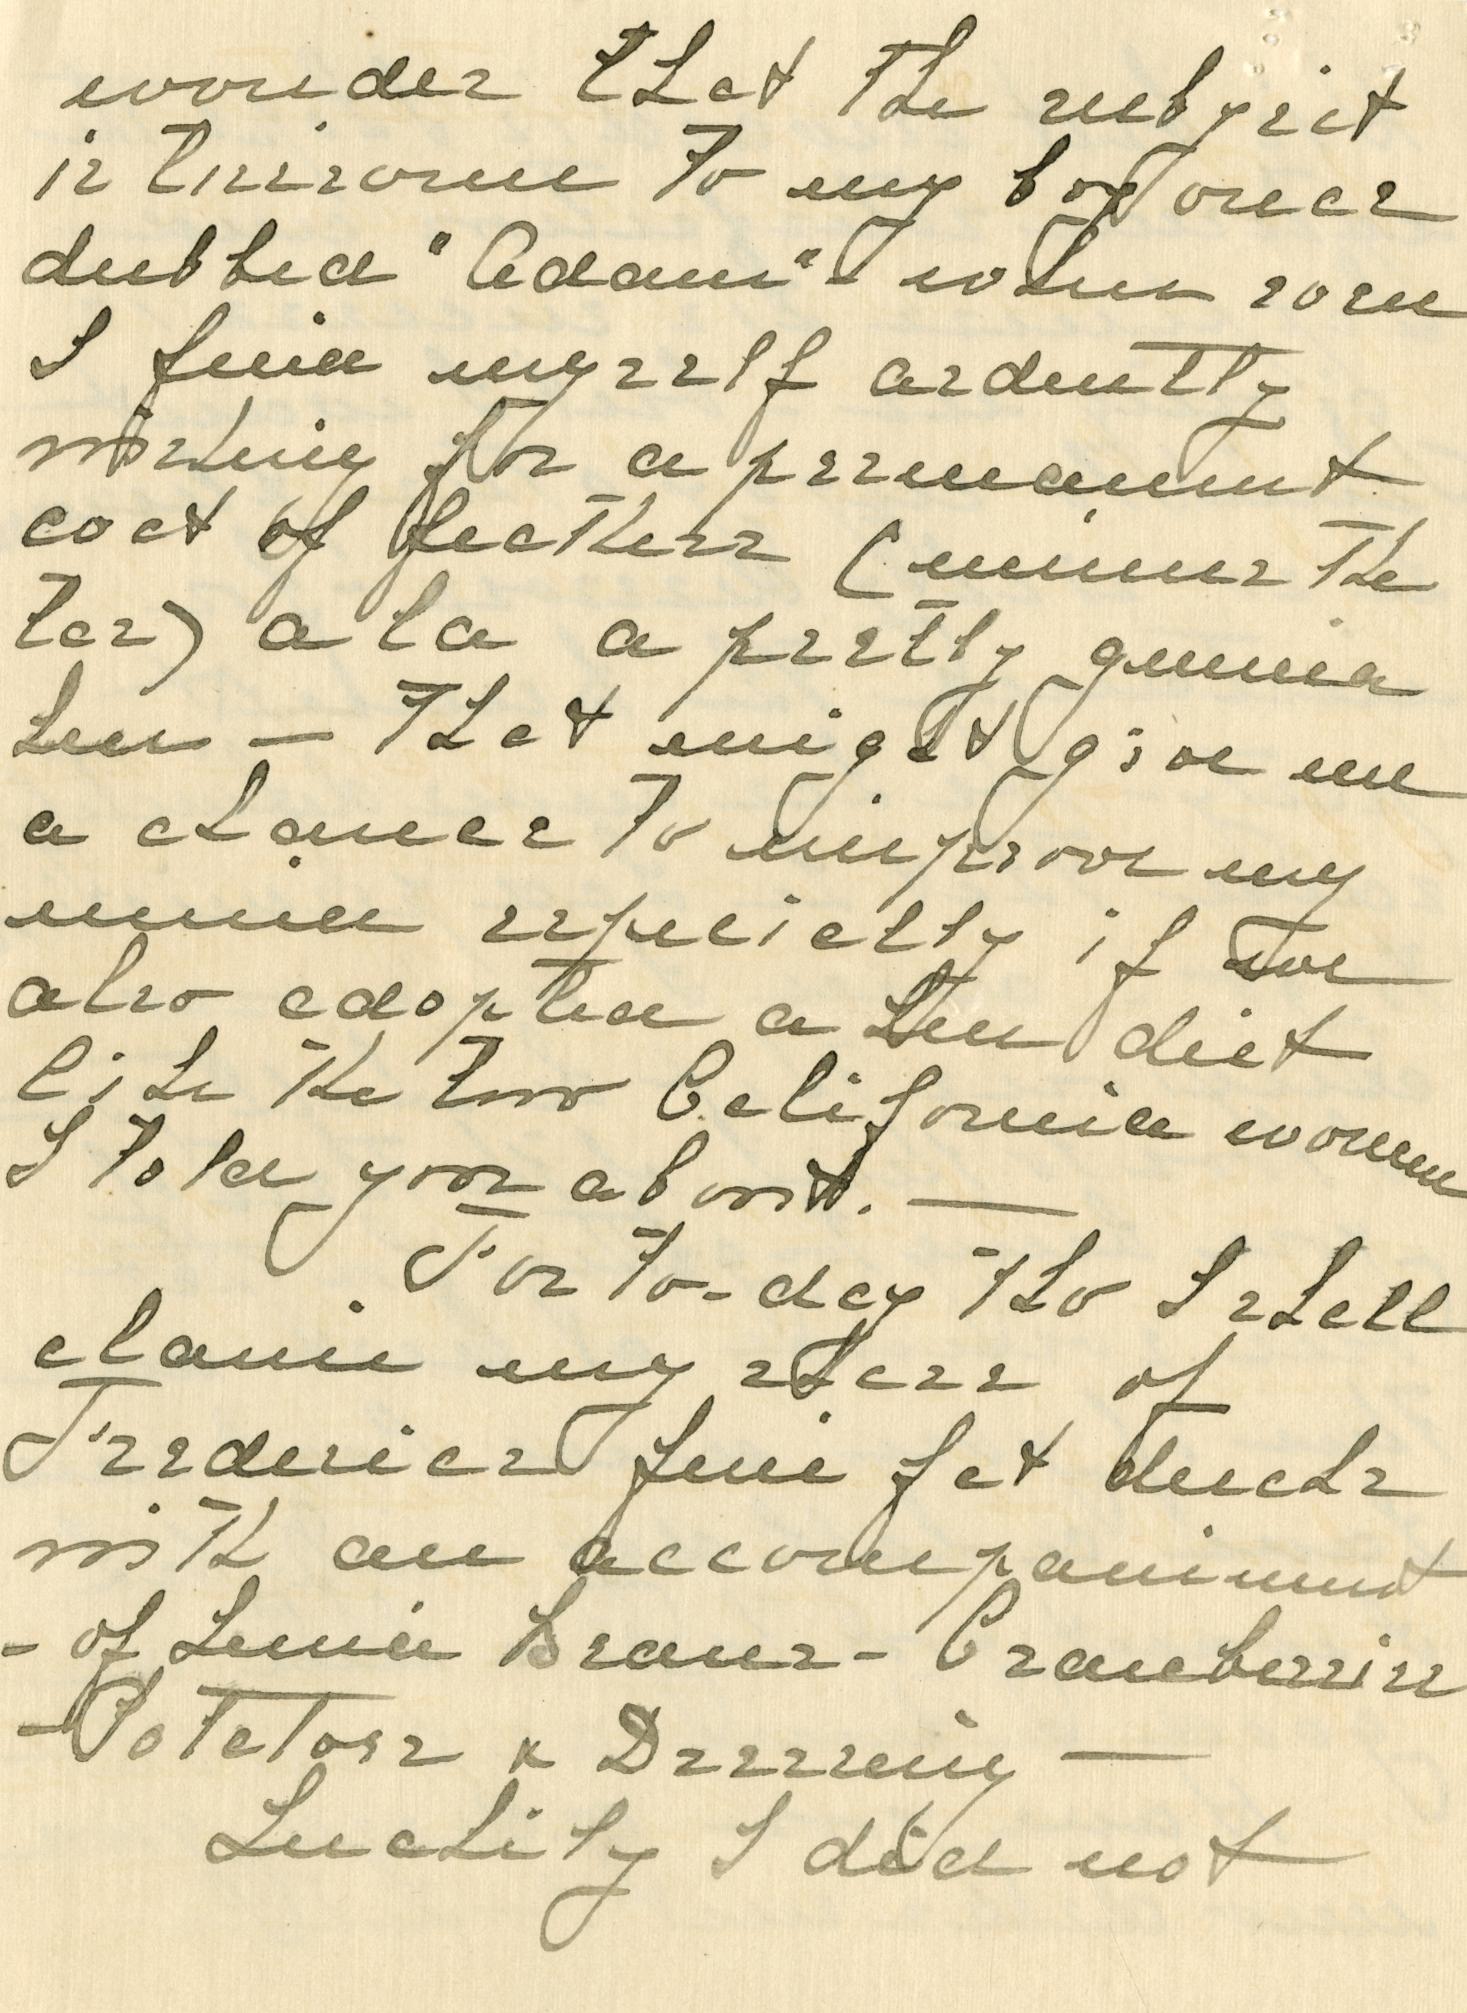 wonder that the subject
is tiresome to my boy once
dubbed "Adam" - when soon
I find myself ardently
wishing for a permanent
coat of feathers (minus the
tar) a la a pretty guinea
hen - that might give me
a chance to improve my
mind especially if we
also adopted a hen diet
like the two California women
I told you about. —
For to-day tho I shall
claim my share of
Frederick fine fat ducks
with an accompaniment
- of Lima Beans - Cranberries
- Potatoes & Dressing —
Luckily I did not